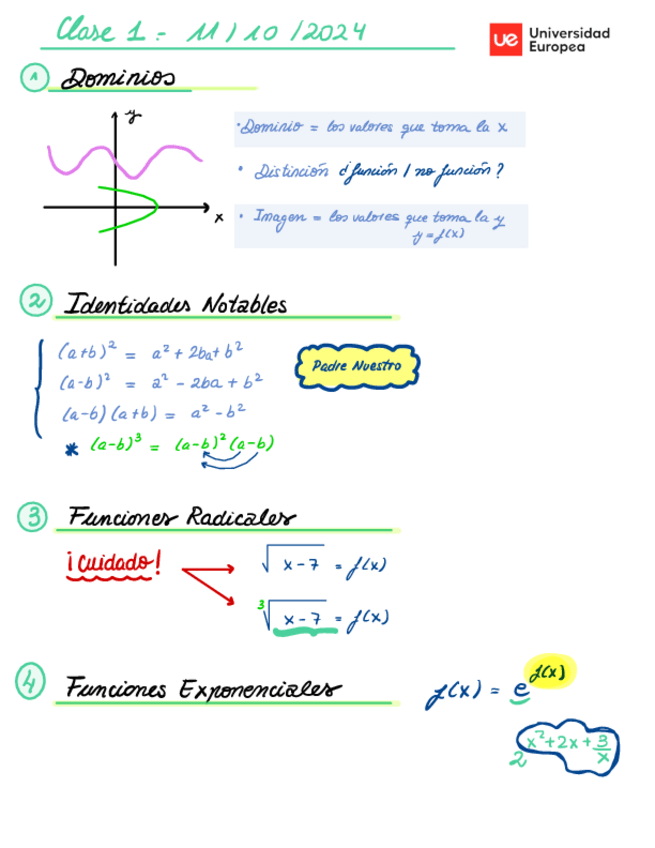 Clase 1 - 11/10/2024
ue Universidad Europea
1 Dominios
y
x
• Dominio = los valores que toma la x
• Distinción d función / no función?
• Imagen = los valores que toma la y
y = f(x)
2 Identidades Notables
(a+b)² = a² + 2ba + b²
(a-b)² = a² - 2ba + b²
(a-b)(a+b) = a² - b²
* (a-b)³ = (a-b)² (a-b)
Padre Nuestro
3 Funciones Radicales
¡Cuidado!
√(x-7) = f(x)
³√(x-7) = f(x)
4 Funciones Exponenciales
f(x) = e^f(x)
2^(x²+2x+3/x)